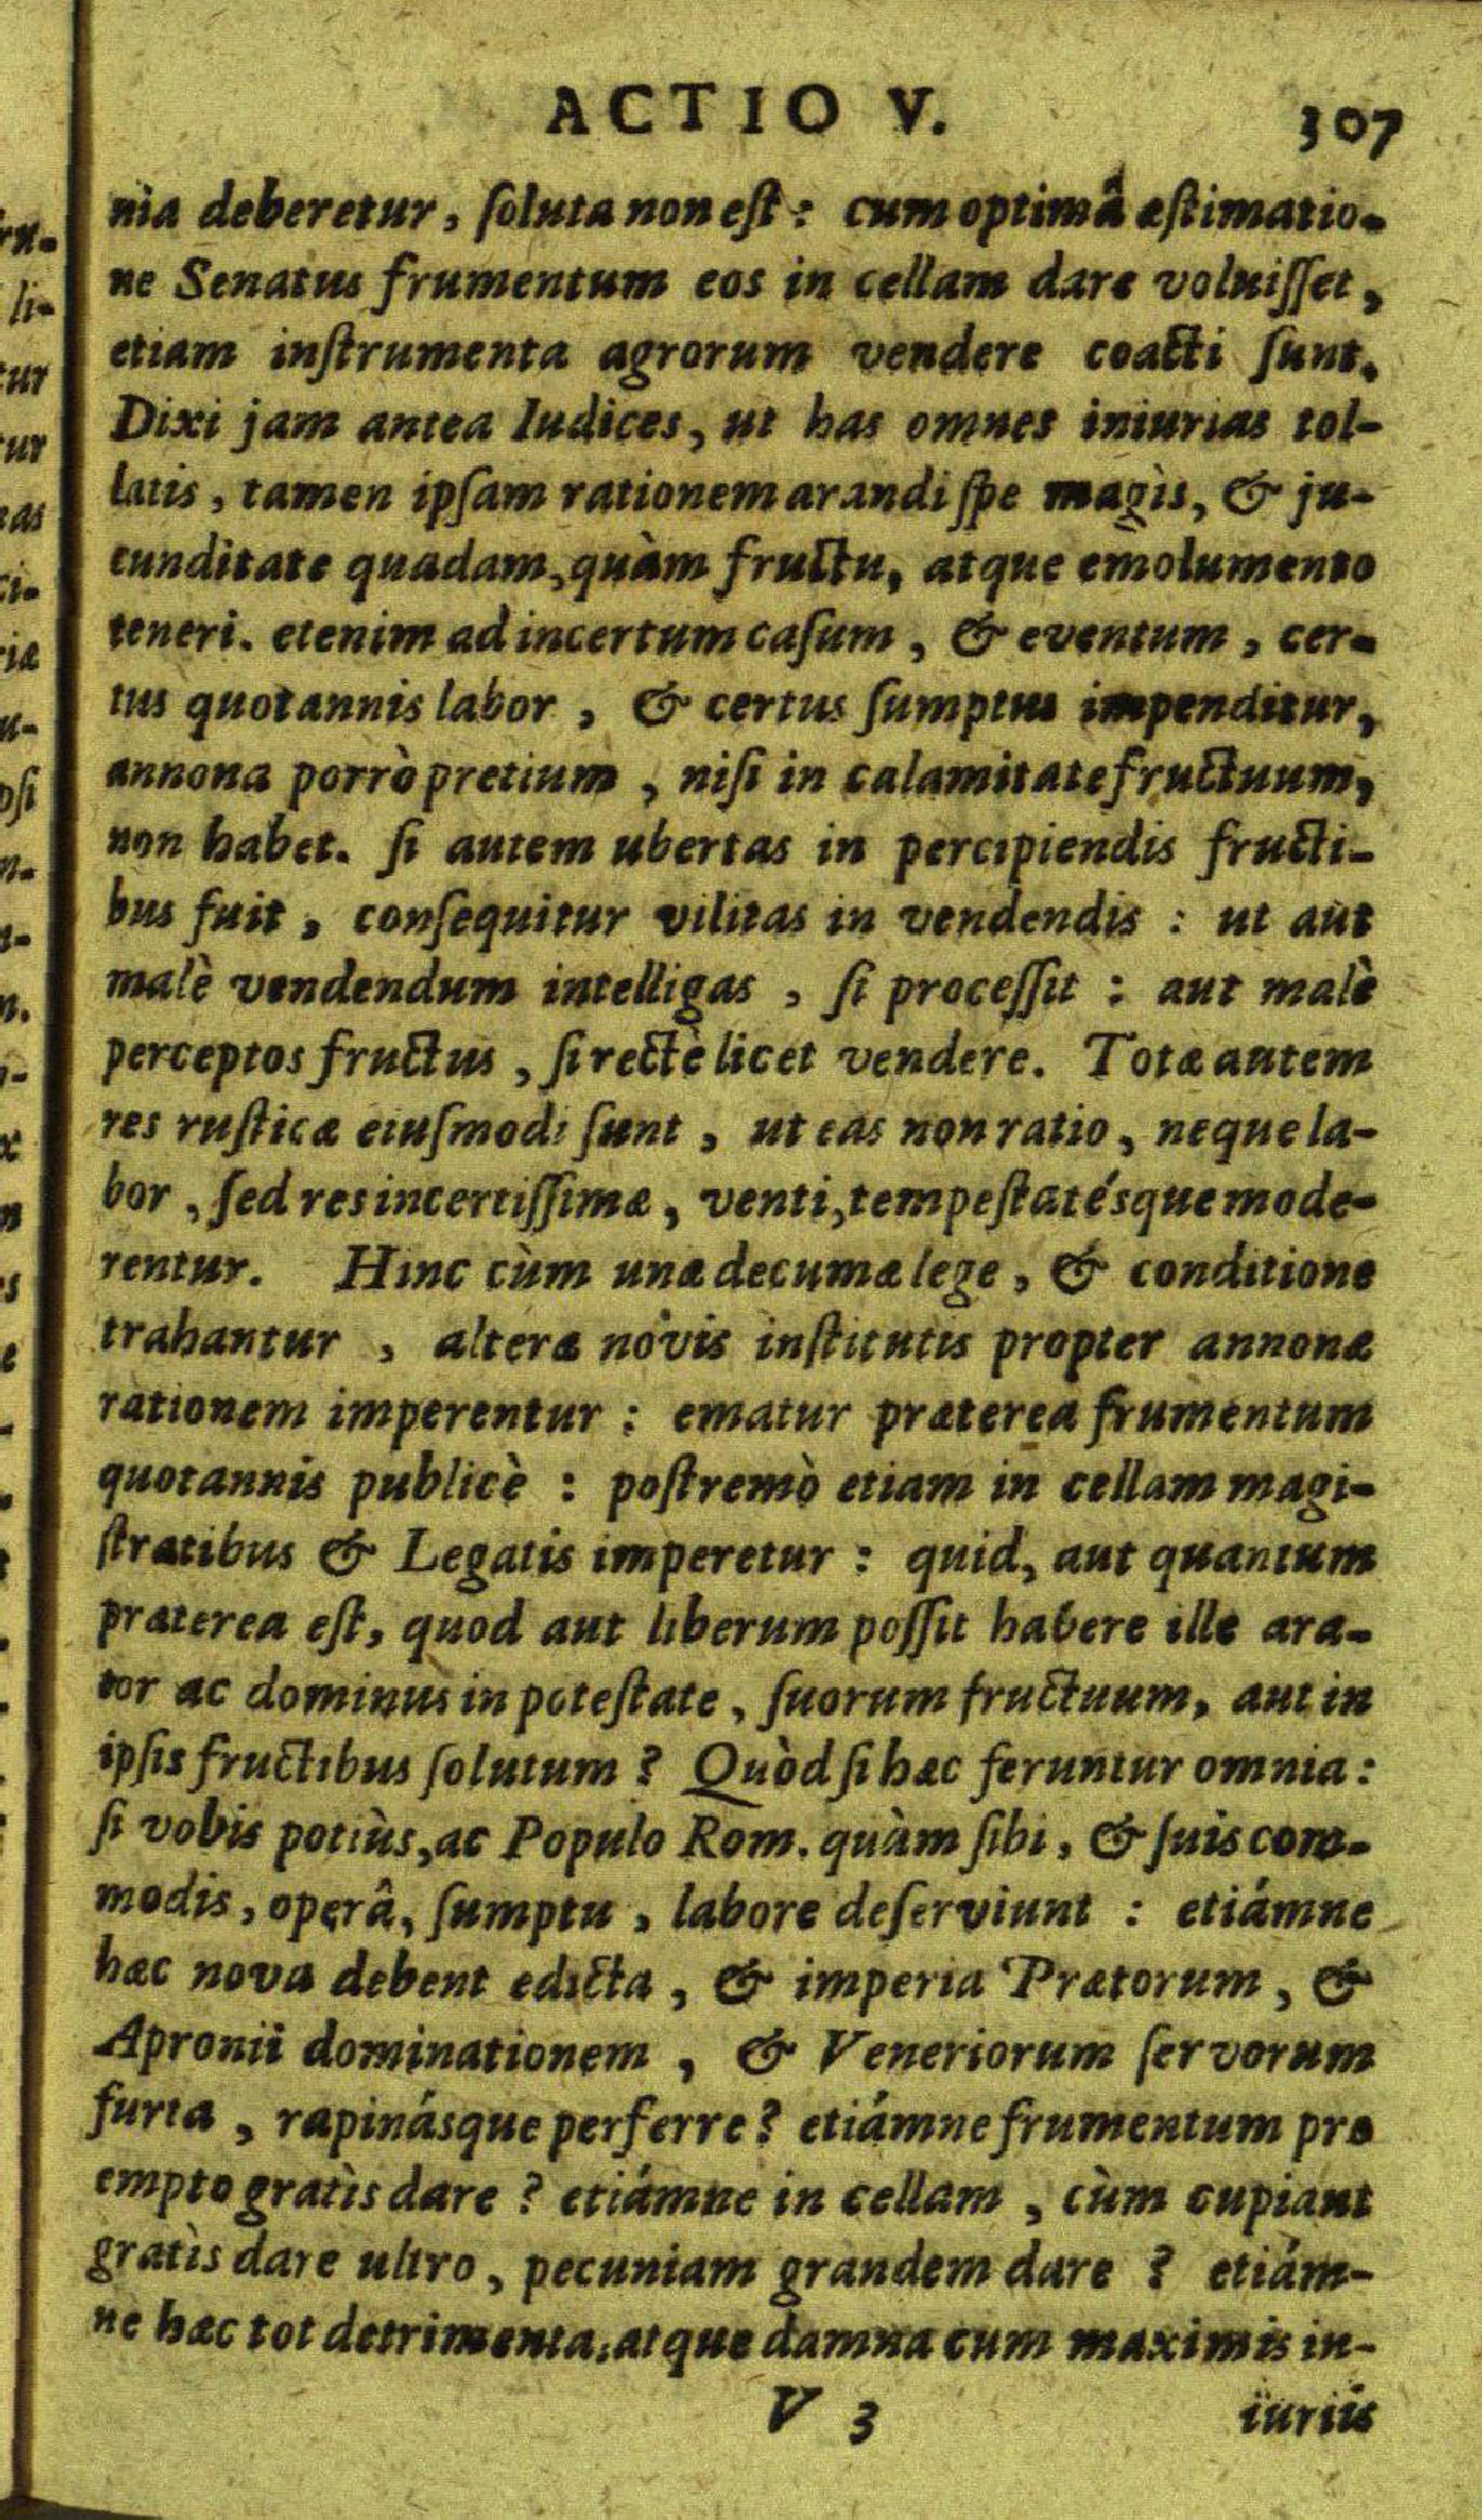 ACTIO V. 307
nia deberetur, ſoluta non eſt: cum optimâ æſtimatio-
ne Senatus frumentum eos in cellam dare voluiſſet,
etiam inſtrumenta agrorum vendere coacti ſunt.
Dixi jam antea Iudices, ut has omnes iniurias tol-
latis, tamen ipſam rationem arandi ſpe magìs, & ju-
cunditate quadam, quàm fructu, atque emolumento
teneri. etenim ad incertum caſum, & eventum, cer-
tus quotannis labor, & certus ſumptus impenditur,
annona porrò pretium, niſi in calamitate fructuum,
non habet. ſi autem ubertas in percipiendis fructi-
bus fuit, conſequitur vilitas in vendendis: ut aut
malè vendendum intelligas, ſi proceſſit: aut malè
perceptos fructus, ſi rectè licet vendere. Totæ autem
res ruſticæ eiuſmodi ſunt, ut eas non ratio, neque la-
bor, ſed res incertiſſimæ, venti, tempeſtatésque mode-
rentur. Hinc cùm unæ decumæ lege, & conditione
trahantur, alteræ novis inſtitutis propter annonæ
rationem imperentur: ematur præterea frumentum
quotannis publicè: poſtremò etiam in cellam magi-
ſtratibus & Legatis imperetur: quid, aut quantum
præterea eſt, quod aut liberum poſſit habere ille ara-
tor ac dominus in poteſtate, ſuorum fructuum, aut in
ipſis fructibus ſolutum? Quòd ſi hæc feruntur omnia:
ſi vobis potiùs, ac Populo Rom. quàm ſibi, & ſuis com-
modis, operâ, ſumptu, labore deſerviunt: etiámne
hæc nova debent edicta, & imperia Prætorum, &
Apronii dominationem, & Veneriorum ſervorum
furta, rapinásque perferre? etiámne frumentum pro
empto gratìs dare? etiámne in cellam, cùm cupiant
gratìs dare ultro, pecuniam grandem dare? etiám-
ne hæc tot detrimenta, atque damna cum maximis in-
V 3 iuriis